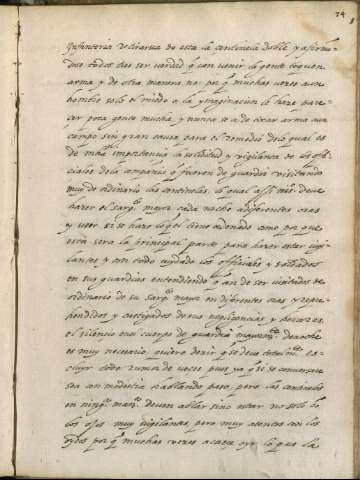 74
Infanteria retirarse do esta la centinela doble, y afirman
dose todos tres ser verdad q̃ con venir la gente toquen
arma y de otra manera no: por q̃ muchas vezes a un
hombre solo el miedo o la ymaginacion le haze pare-
cer poca gente mucha, y nunca se a de tocar arma a un
campo sin gran causa para el remedio de lo qual es
de mha importancia la solicitud y vigilancia de los offi-
ciales de la compañia q̃ fueren de guardia visitando
muy de ordinario las centinelas, lo qual assi mesº deve
hazer el sargto mayor cada noche a diferentes oras
y veer si se haze lo q̃ el tiene ordenado como por que
esta sera la principal parte para hazer estar vigi-
lantes y con todo cuydado los officiales y soldados
en sus guardias entendiendo q̃ an de ser visitados de
ordinario de su Sargto mayor en diferentes oras y repre-
hendidos y castigados de sus negligencias y
el silencio en el cuerpo de guardia mayormte de noche
es muy necesario, quiero dezir q̃ se deve totalmte es-
cluyr todo rumor de vozes pues ya q̃ se conversare
sea con modestia hablando passo, pero las centinelas
en ningª manª deven ablar sino estar no solo co
los ojos muy vigilantes, pero muy atentos con los
oydos por q̃ muchas vezes acaeze oyr lo que la